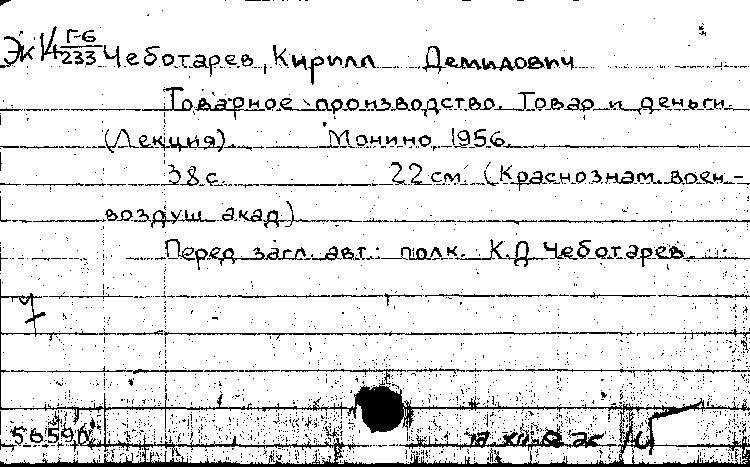 Эк 14 Г-6/233 Чеботарев, Кирилл Демидович
Товарное производство. Товар и деньги.
(Лекция). Монино, 1956.
38 с. 22 см. (Краснознам. воен-
воздуш. акад.)
Перед загл. авт.: полк. К.Д. Чеботарев.
ч